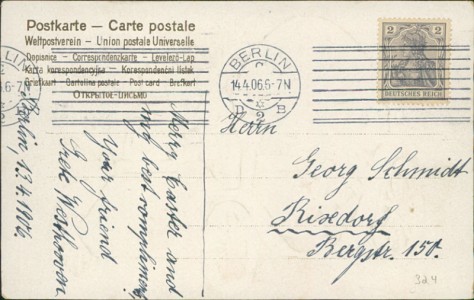 Postkarte — Carte postale
Weltpostverein — Union postale Universelle
Dopisnice — Correspondenzkarte — Levelező-Lap
Karta korespondencyjna — Korespondenční lístek
Briefkart — Cartolina postale — Post card — Brefkort
Открытое-письмо
BERLIN
14.4.06.6-7N
2
2
DEUTSCHES REICH
Herrn
Georg Schmidt
Rixdorf
Bergstr. 150.
Merry Easter and
my best compliments
Your friend
Berlin, 13.4.1906.
324